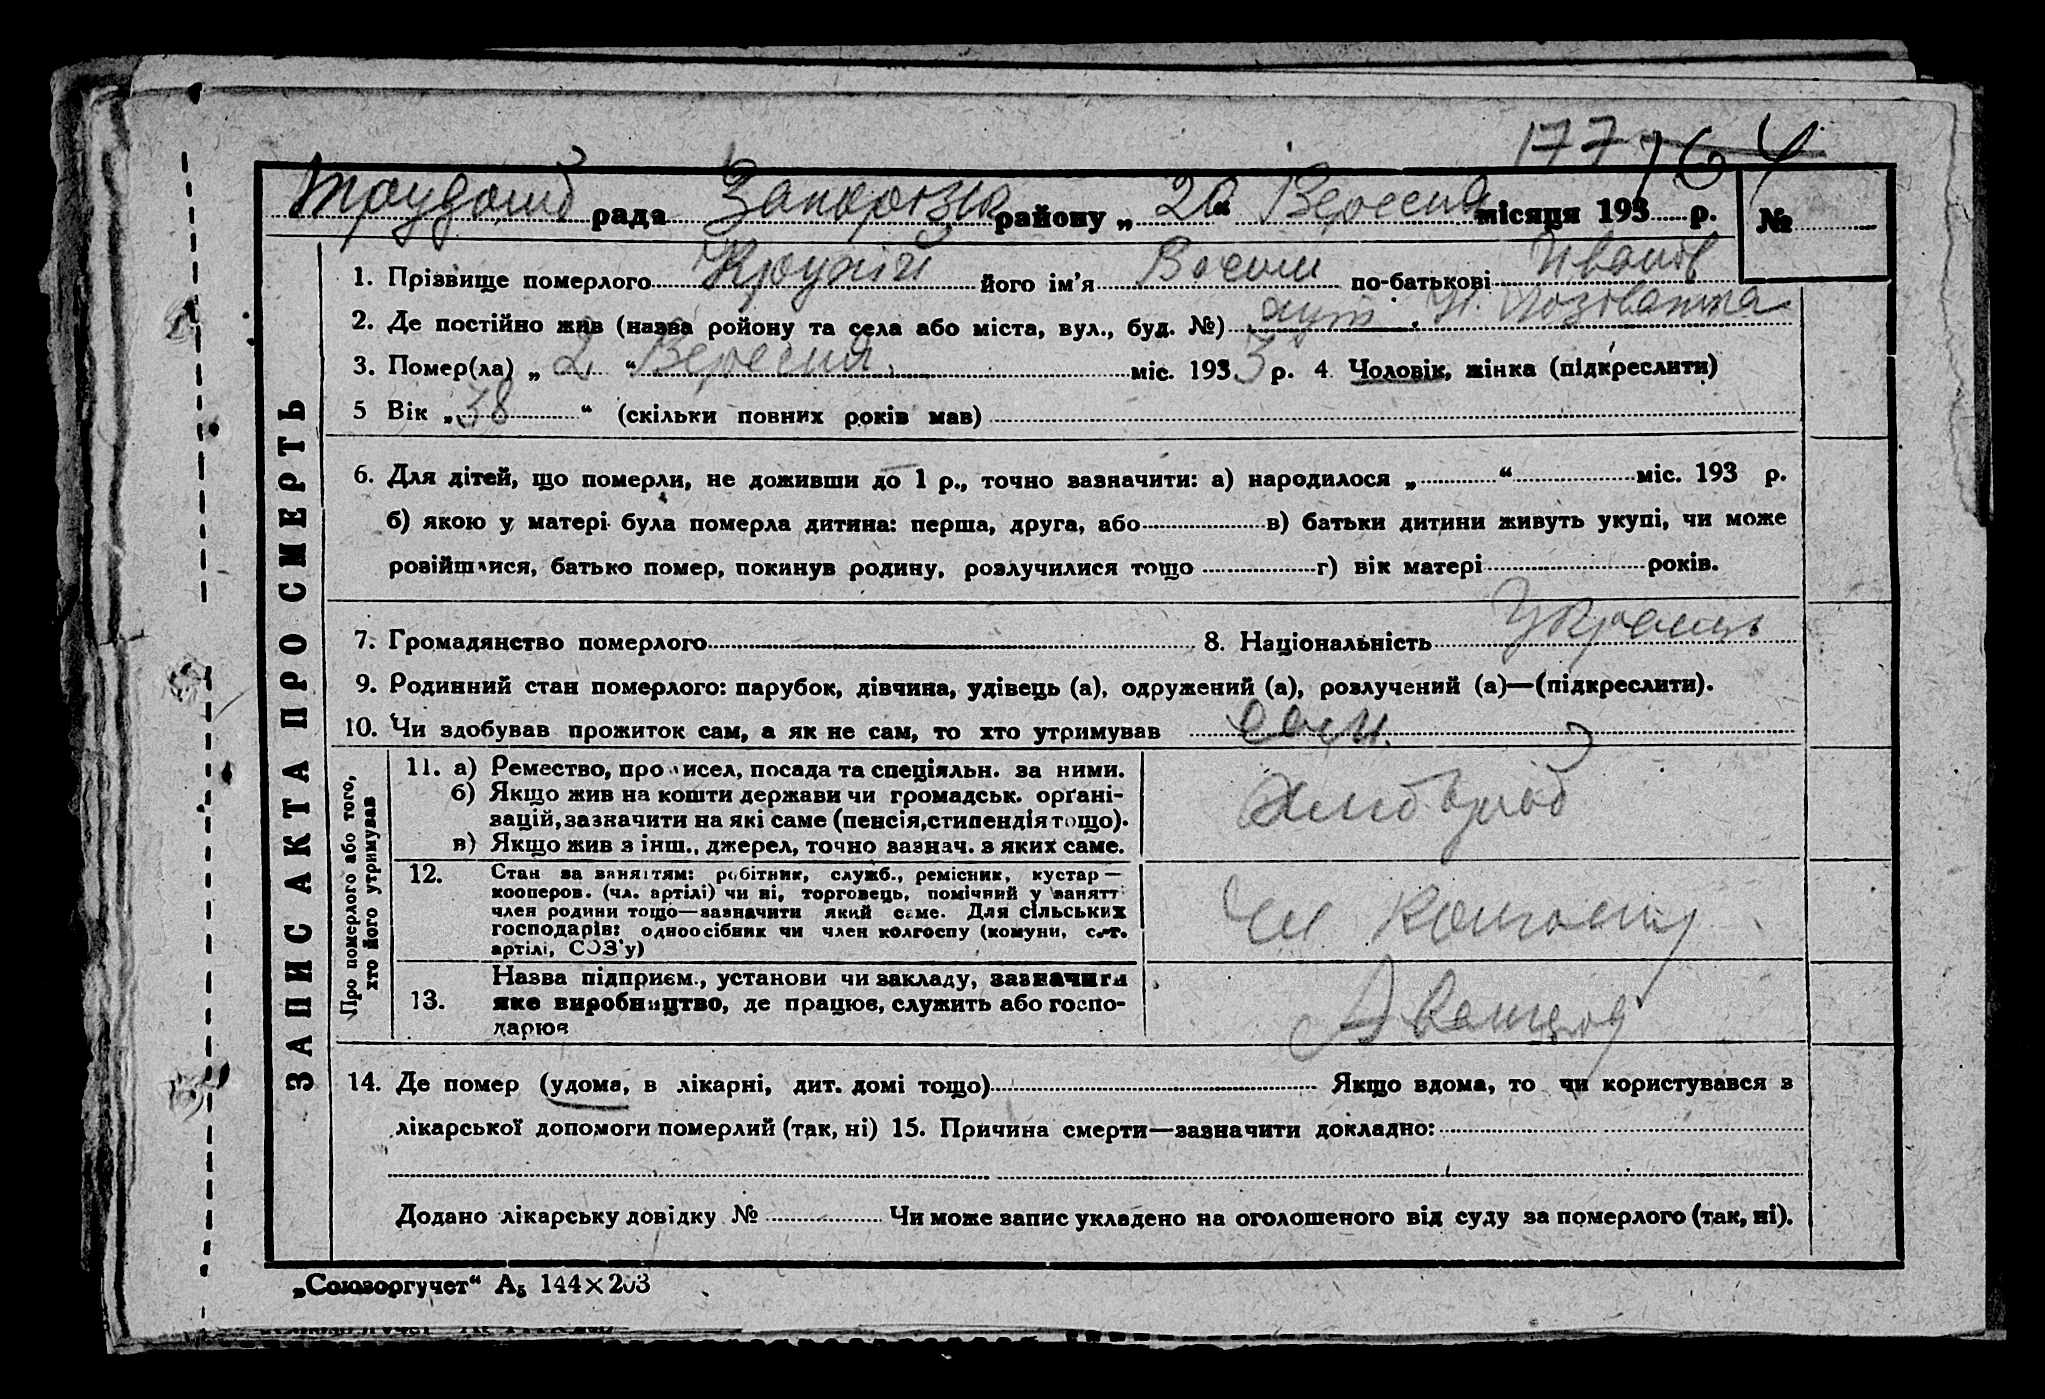 177 164
рада району „ 20 “ Вересня місяця 193 р. №
ЗАПИС АКТА ПРО СМЕРТЬ
1. Прізвище померлого його ім'я по-батькові Иванов
2. Де постійно жив (назва ройону та села або міста, вул., буд. №) хут. Н. Лозоватка
3. Помер(ла) „ 2 “ Вересня міс. 1933 р. 4 Чоловік, жінка (підкреслити)
5 Вік „ 38 “ (скільки повних років мав)
6. Для дітей, що померли, не доживши до 1 р., точно зазначити: а) народилося „ “ міс. 193 р.
б) якою у матері була померла дитина: перша, друга, або в) батьки дитини живуть укупі, чи може
розійшлися, батько помер, покинув родину, розлучилися тощо г) вік матері років.
7. Громадянство померлого 8. Національність Украинць
9. Родинний стан померлого: парубок, дівчина, удівець (а), одружений (а), розлучений (а)—(підкреслити).
10. Чи здобував прожиток сам, а як не сам, то хто утримував сам.
Про померлого або того,
хто його утримував
11. а) Ремество, промисел, посада та спеціяльн. за ними.
б) Якщо жив на кошти держави чи громадськ. орґані-
зацій, зазначити на які саме (пенсія, стипендія тощо).
в) Якщо жив з інш., джерел, точно зазнач. з яких саме.
Хлібороб
12. Стан за заняттям: робітник, служб., ремісник, кустар—
кооперов. (чл. артілі) чи ні, торговець, помічний у занятт
член родини тощо—зазначити який саме. Для сільських
господарів: одноосібник чи член колгоспу (комуни, с.-г.
артілі, СОЗ'у)
Чл
13. Назва підприєм., установи чи закладу, зазначити
яке виробництво, де працює, служить або госпо-
дарює
14. Де помер (удома, в лікарні, дит. домі тощо) Якщо вдома, то чи користувався з
лікарської допомоги померлий (так, ні) 15. Причина смерти—зазначити докладно:
Додано лікарську довідку № Чи може запис укладено на оголошеного від суду за померлого (так, ні).
„Союзоргучет“ А₅ 144×203